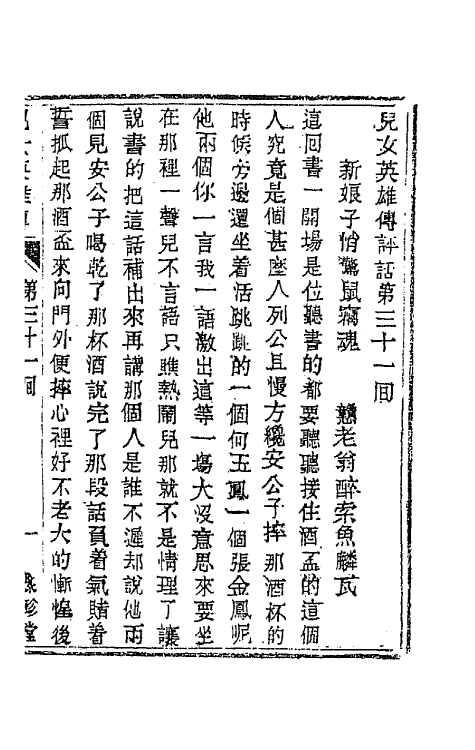 兒女英雄傳評話第三十一回
新娘子悄驚鼠竊魂　戇老翁醉索魚鱗瓦
這回書一開場是位聽書的都要聽聽接住酒盃的這個
人究竟是個甚麼人列公且慢方纔安公子摔那酒杯的
時候旁邊還坐着活跳跳的一個何玉鳳一個張金鳳呢
他兩個你一言我一語激出這等一塲大沒意思來要坐
在那裡一聲兒不言語只瞧熱鬧兒那就不是情理了讓
說書的把這話補出來再講那個人是誰不遲却說他兩
個見安公子喝乾了那杯酒說完了那段話負着氣賭着
誓抓起那酒盃來向門外便摔心裡好不老大的慚惶後
第三十一回　一　聚珍堂